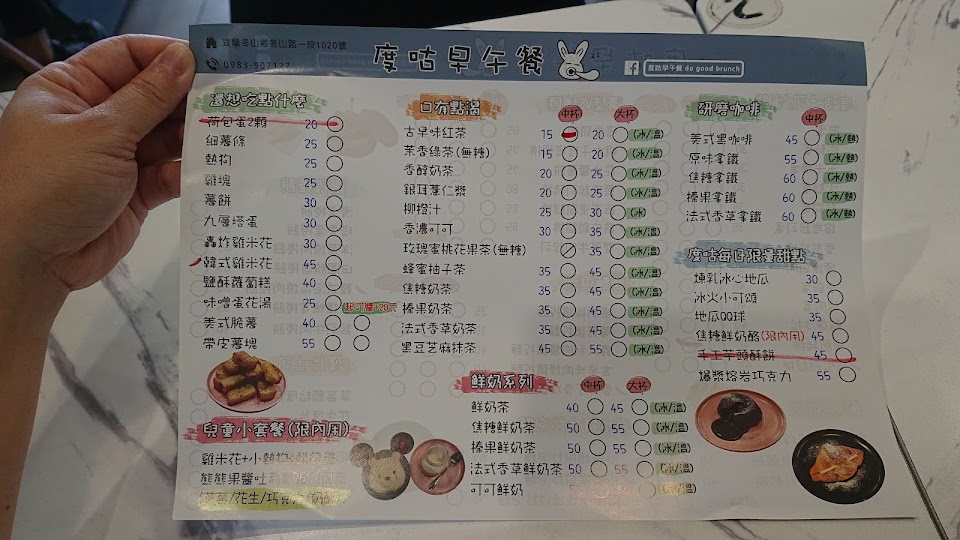 宜蘭冬山鄉冬山路一段1020號
0983-907127
度咕早午餐
度咕早午餐 do good brunch
還想吃點什麼
荷包蛋2顆 20
細薯條 25
熱狗 25
雞塊 25
薯餅 30
九層塔蛋 30
轟炸雞米花 30
韓式雞米花 45
鹽酥蘿蔔糕 40
味噌蛋花湯 25
美式脆薯 40
帶皮薯塊 55
兒童小套餐(限內用)
雞米花+小熱狗
熊熊果醬吐司
口有點渴
中杯 大杯
古早味紅茶 15 20 (冰/溫)
茉香綠茶(無糖) 15 20 (冰/溫)
香醇奶茶 20 25 (冰/溫)
銀耳薏仁漿 20 25 (冰/溫)
柳橙汁 25 30 (冰)
香濃可可 30 35 (冰/溫)
玫瑰蜜桃花果茶(無糖) 35 (冰/溫)
蜂蜜柚子茶 35 45 (冰/溫)
焦糖奶茶 35 45 (冰/溫)
榛果奶茶 35 45 (冰/溫)
法式香草奶茶 35 45 (冰/溫)
黑豆芝麻抹茶 45 55 (冰/溫)
鮮奶系列
中杯 大杯
鮮奶茶 40 45 (冰/溫)
焦糖鮮奶茶 50 55 (冰/溫)
榛果鮮奶茶 50 55 (冰/溫)
法式香草鮮奶茶 50 55 (冰/溫)
可可鮮奶 (冰/溫)
研磨咖啡
中杯
美式黑咖啡 45 (冰/熱)
原味拿鐵 55 (冰/熱)
焦糖拿鐵 60 (冰/熱)
榛果拿鐵 60 (冰/熱)
法式香草拿鐵 60 (冰/熱)
度咕每日限量甜點
煉乳冰心地瓜 30
冰火小可頌 35
地瓜QQ球 35
焦糖鮮奶酪(限內用) 45
手工芋頭酥餅 45
爆漿熔岩巧克力 55